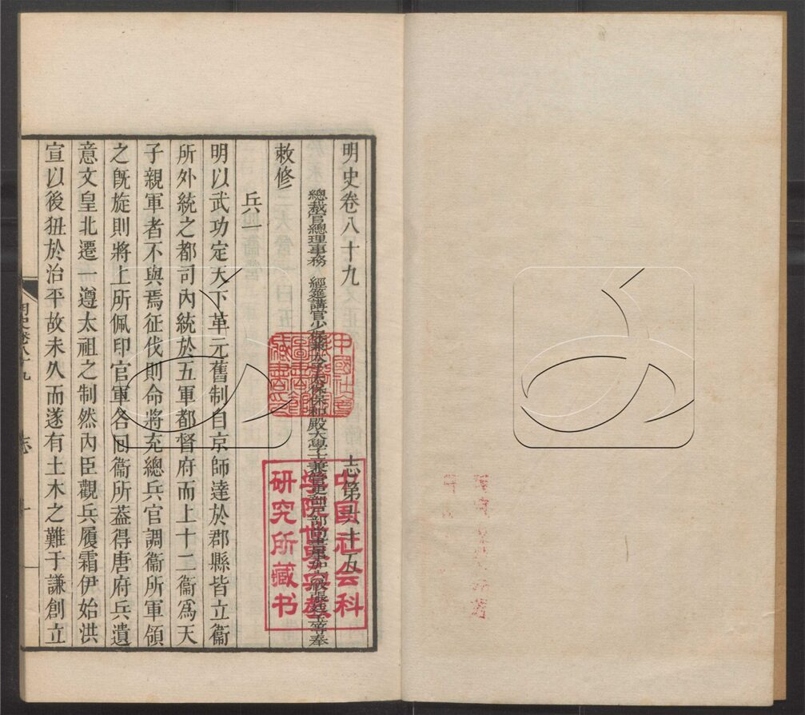 明史卷八十九
志第六十五
總裁官總理事務 經筵講官少保兼太子太保保和殿大學士兼管吏部戶部尚書事加六級張廷玉等奉
敕修
兵一
明以武功定天下革元舊制自京師達於郡縣皆立衞
所外統之都司內統於五軍都督府而上十二衞為天
子親軍者不與焉征伐則命將充總兵官調衞所軍領
之旣旋則將上所佩印官軍各回衞所葢得唐府兵遺
意文皇北遷一遵太祖之制然內臣觀兵履霜伊始洪
宣以後狃於治平故未久而遂有土木之難于謙創立
明史卷八十九
志
一
中國社會
藏書
中国社会科
学院世界宗教
研究所藏书